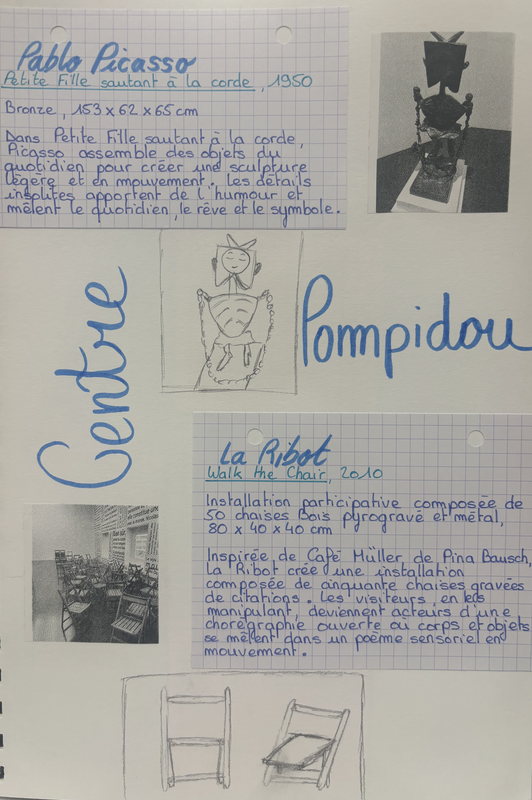 Pablo Picasso
Petite Fille sautant à la corde, 1950
Bronze, 153 x 62 x 65 cm
Dans Petite Fille sautant à la corde,
Picasso assemble des objets du
quotidien pour créer une sculpture
légère et en mouvement. Les détails
insolites apportent de l'humour et
mêlent le quotidien, le rêve et le symbole.
Centre
Pompidou
La Ribot
Walk the Chair, 2010
Installation participative composée de
50 chaises Bois pyrogravé et métal,
80 x 40 x 40 cm
Inspirée de Café Müller de Pina Bausch,
La Ribot crée une installation
composée de cinquante chaises gravées
de citations. Les visiteurs, en les
manipulant, deviennent acteurs d'une
chorégraphie ouverte où corps et objets
se mêlent dans un poème sensoriel en
mouvement.